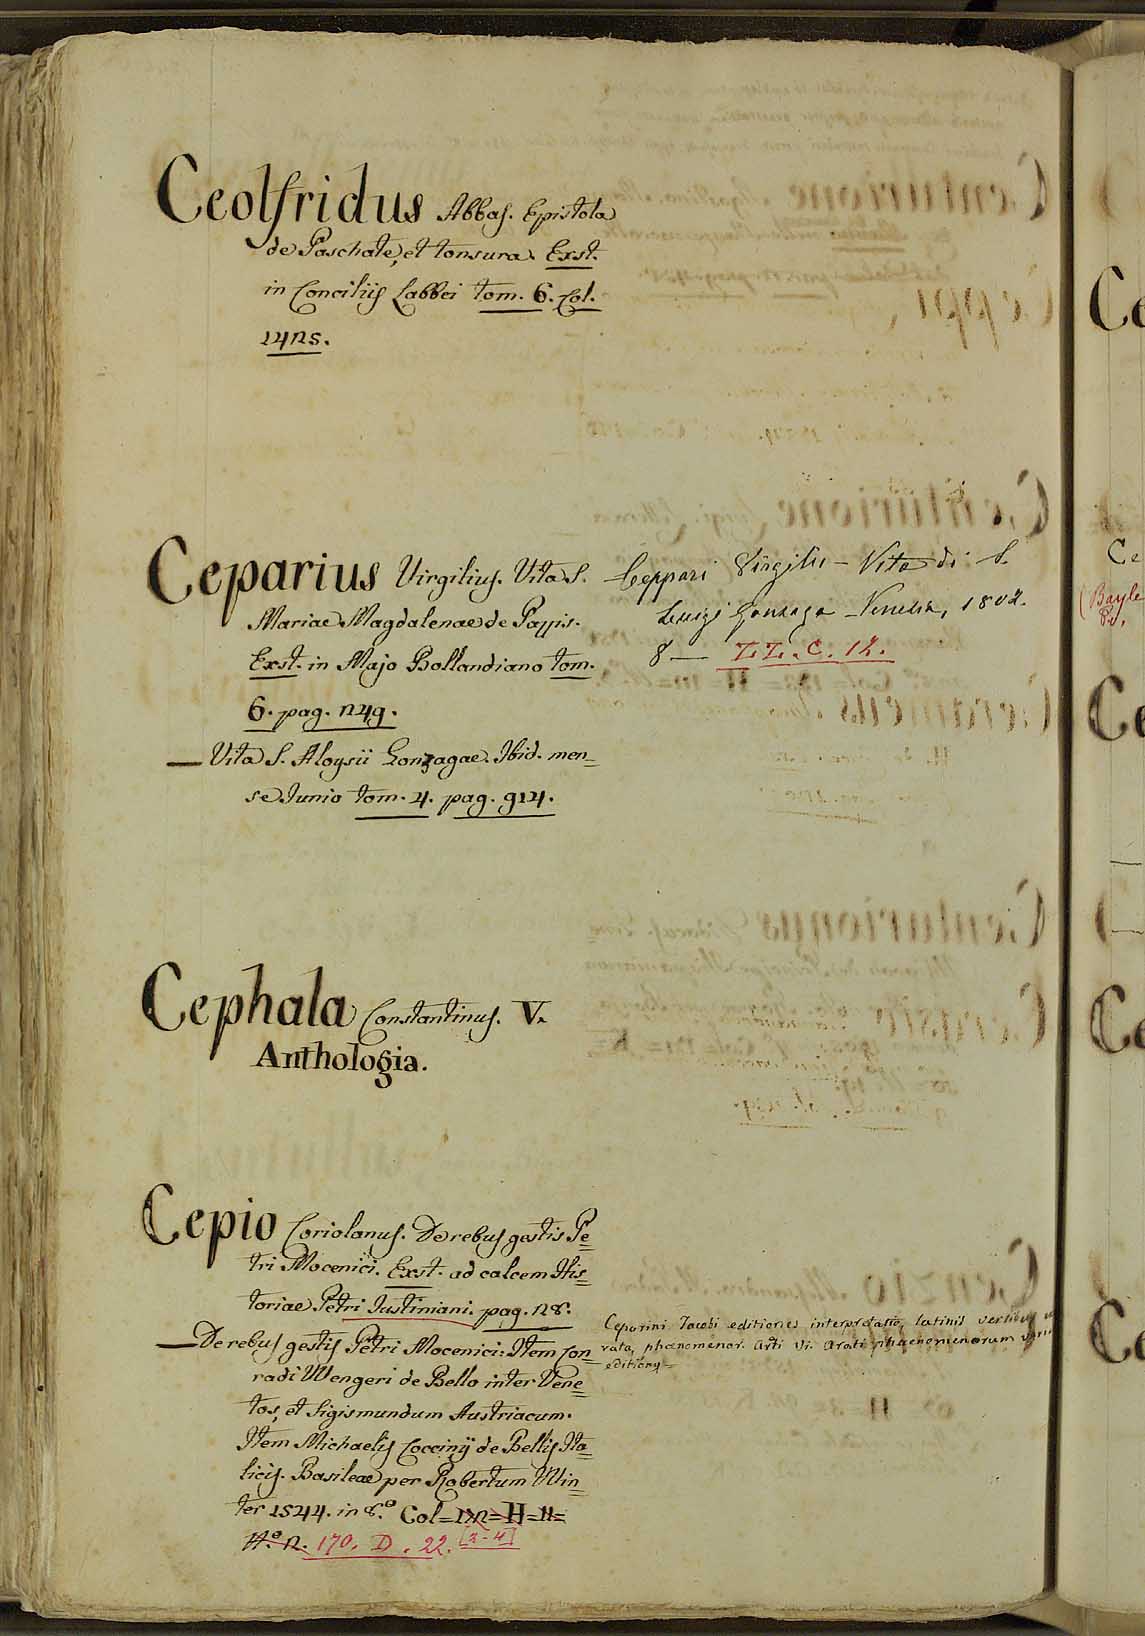 Ceolfridus Abbas. Epistola
de Paschate, et tonsura. Exst.
in Conciliis Labbei tom. 6. Col.
1425.
Ceparius Virgilius. Vita S.
Mariae Magdalenae de Pazzis.
Exst. in Majo Bollandiano tom.
6. pag. 249.
— Vita S. Aloysii Gonzagae. Ibid. men=
se Junio tom. 4. pag. 914.
Ceppari Virgilii – Vita di S.
Luigi Gonzaga – Venezia, 1802.
8 — Z.Z. C. 12.
Cephala Constantinus. V.
Anthologia.
Cepio Coriolanus. De rebus gestis Pe=
tri Mocenici. Exst. ad calcem His=
toriae Petri Justiniani. pag. 28.
— De rebus gestis Petri Mocenici: Item Con=
radi Wengeri de Bello inter Vene=
tos, et Sigismundum Austriacum.
Item Michaelis Coccinij de Bellis Ita=
licis. Basileae per Robertum Win=
ter 1544. in 8.º Col = 122 = H = 11 =
N.º 2. 170. D. 22. [3-4]
Ceporini Jacobi editiones interpretatio, latinis versibus
rata, phaenomenor. Arti V. Arati phaenomenorum
editiony =
Ce
Ce
(Bayle
P.,
Ce
Ce
Ce